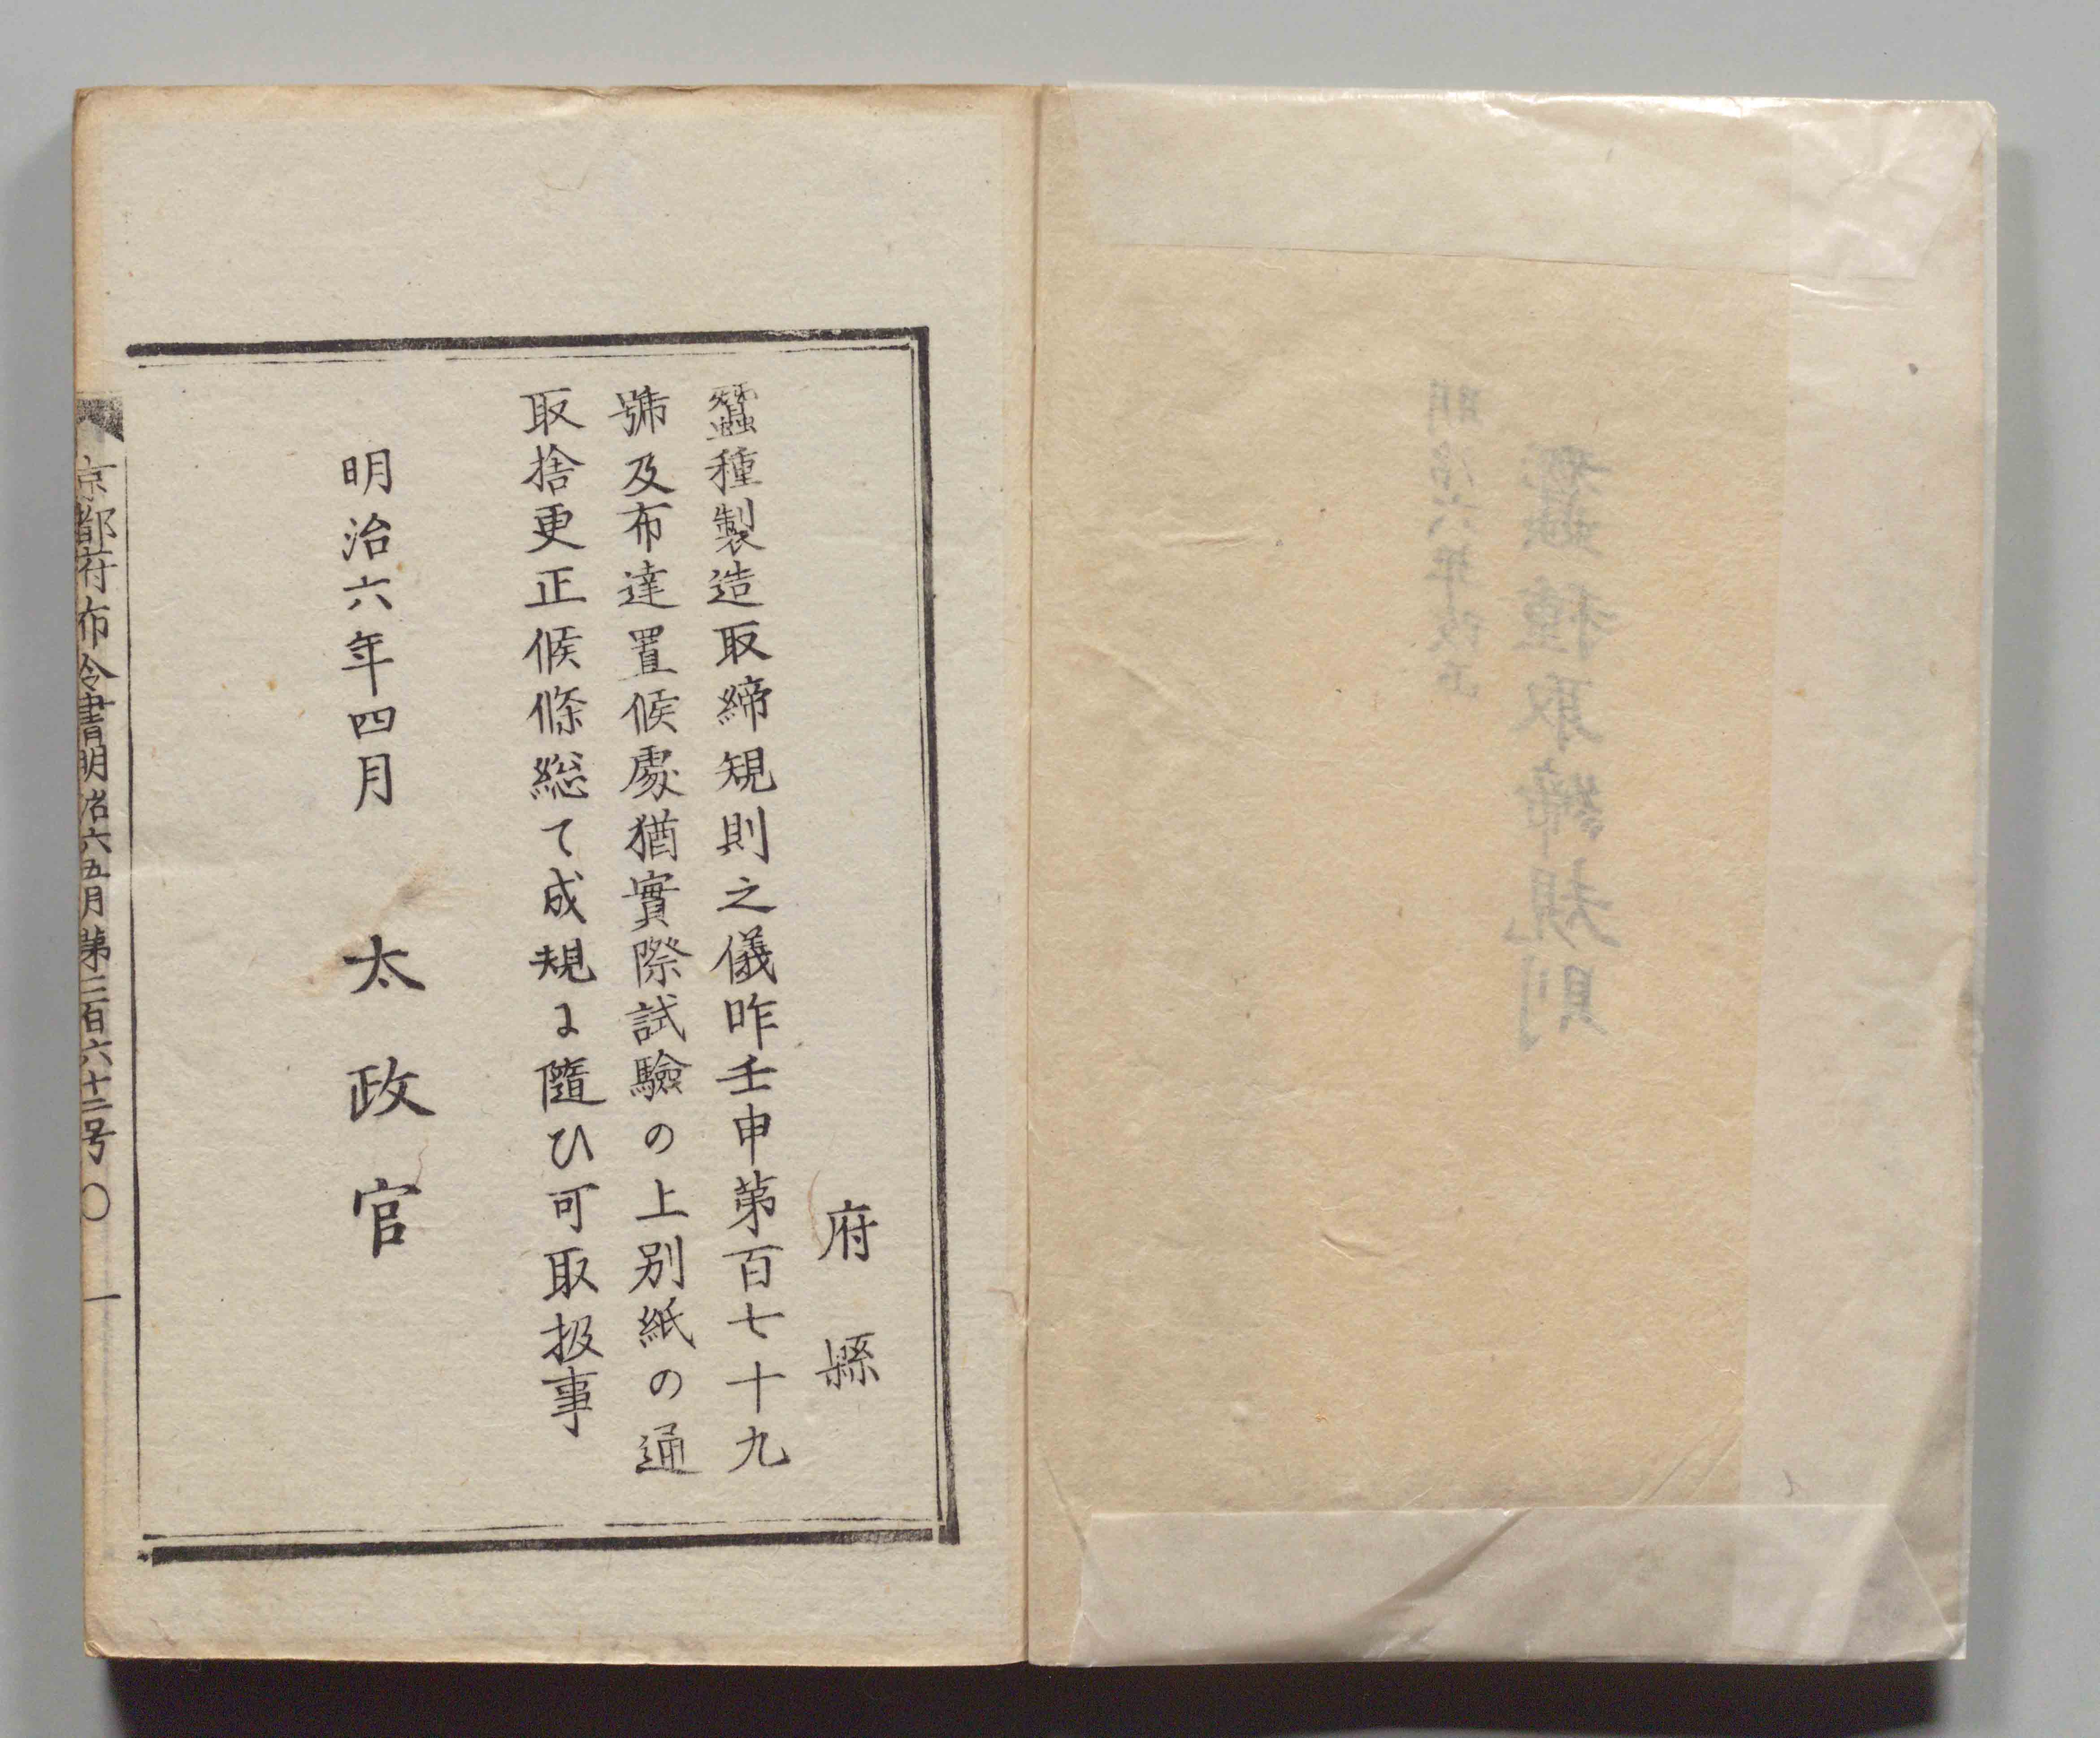 蠶種取締規則
明治六年改正
府縣
蠶種製造取締規則之儀昨壬申第百七十九
號及布達置候處猶實際試驗の上別紙の通
取捨更正候條総て成規に隨ひ可取扱事
明治六年四月　太政官
京都府布令書明治六五月第三百六十二号〇　一